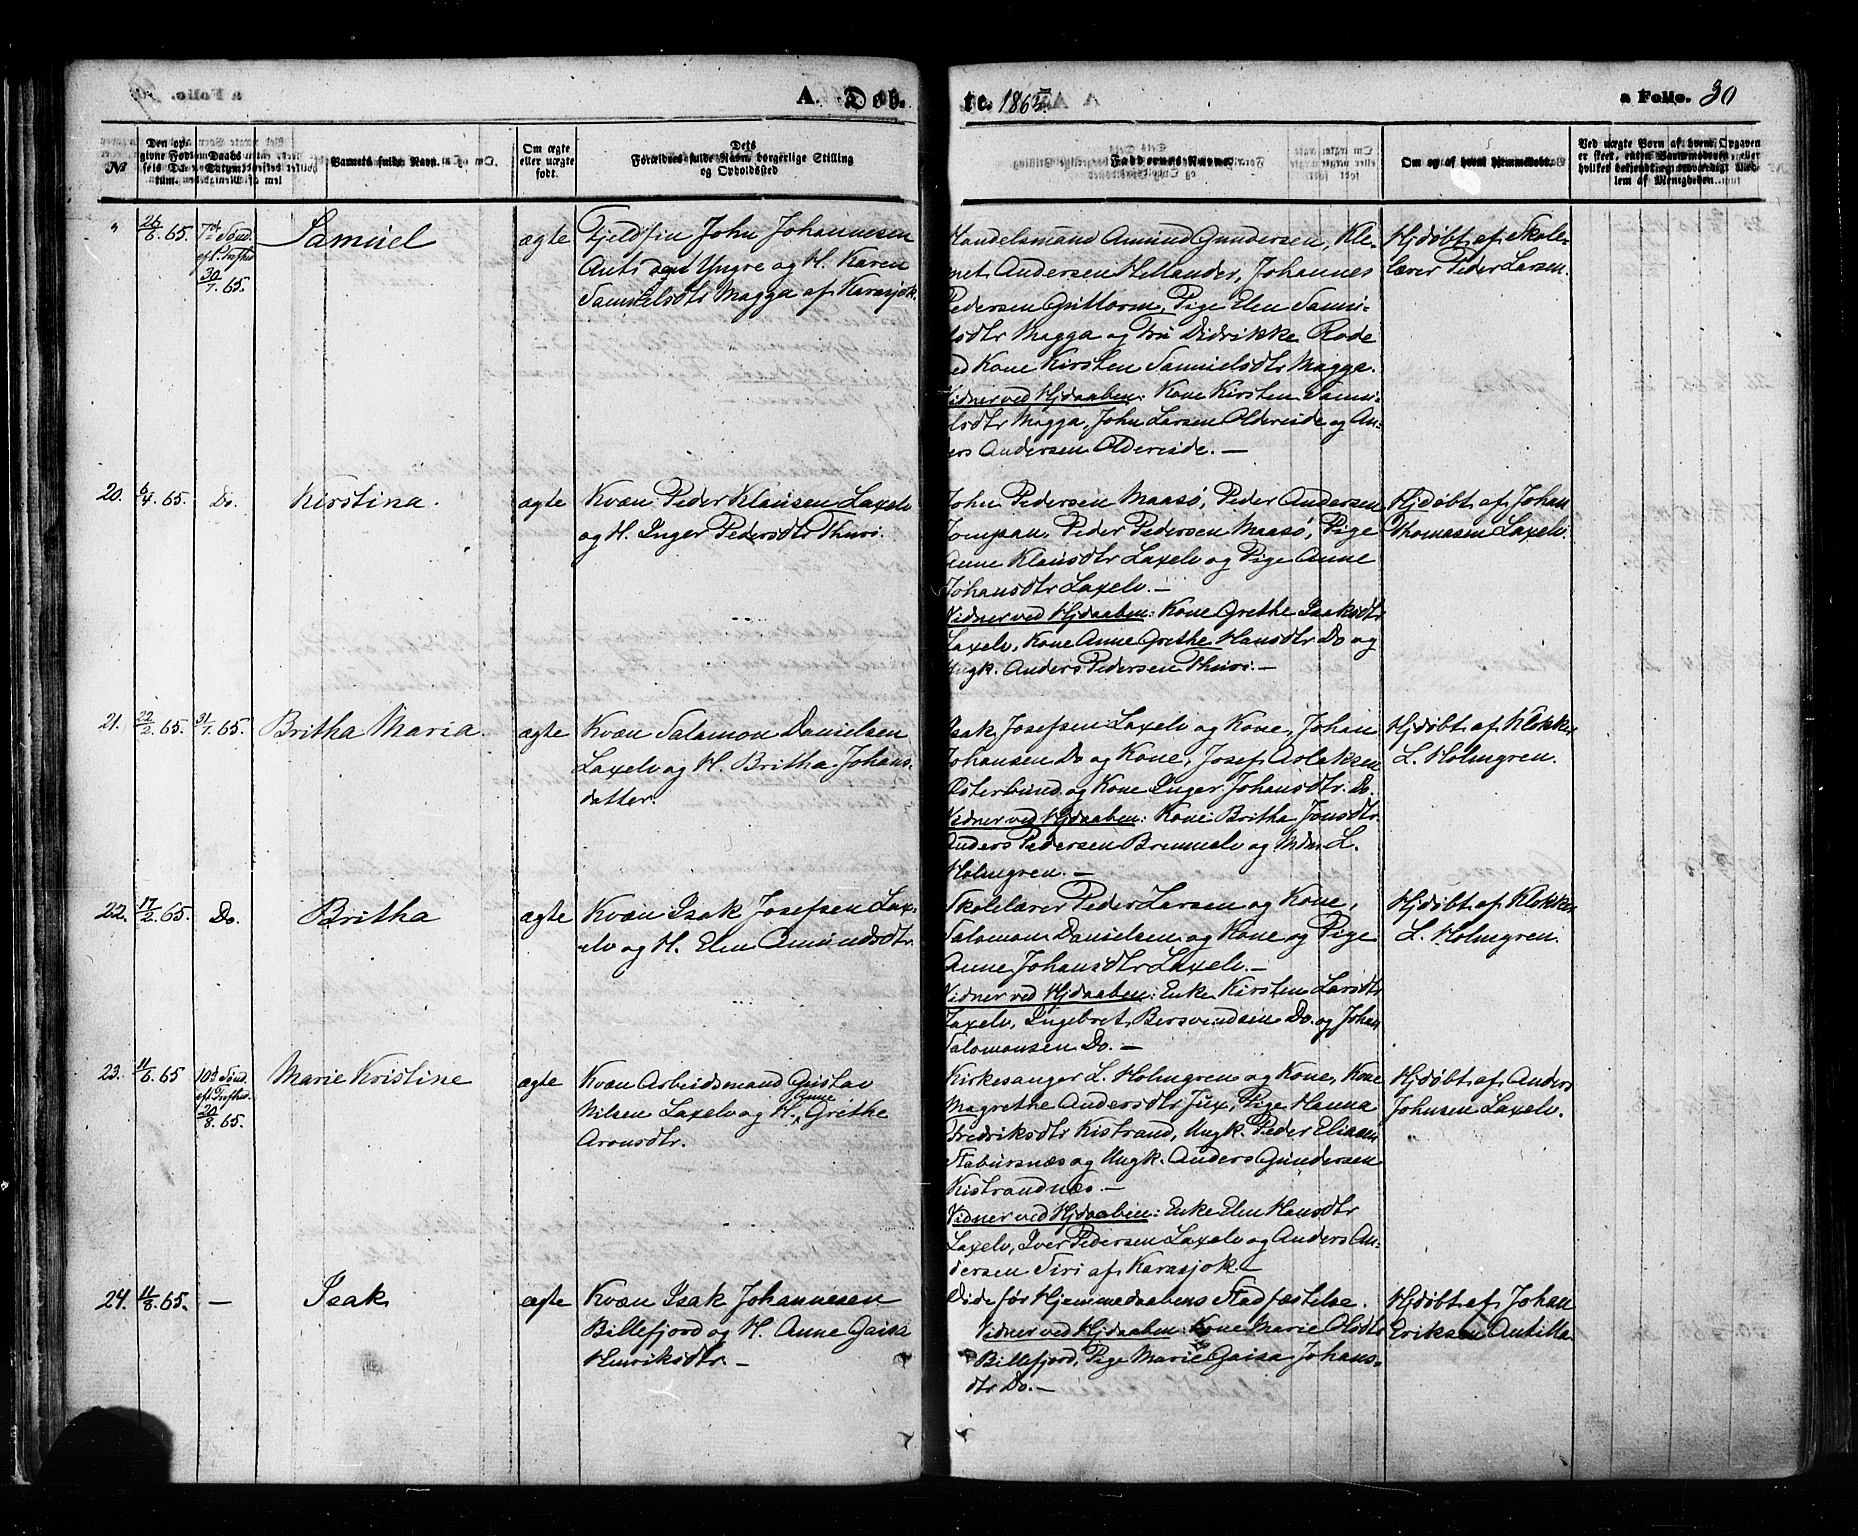 A. Døb
te. 1865.
a Folio. 30
№
Den op-
givne Fød-
sels Da-
tum.
Daabs
Datum.
Barnets fulde Navn.
Om ægte
eller uægte
født.
Dets
Forældres fulde Navn, borgerlige Stilling
og Opholdssted
Faddernes Navne.
Om og af hvem hjemmedøbt.
Ved uægte Børn af hvem Opgaven
er skeet, enten Barnemoderen, eller
hvilket bekjendt og troværdigt Med-
lem af Menigheden.
"
26/6 65.
7de Sønd.
eft. Trefhd.
30/7. 65.
Samuel
ægte
Fjeldfin John Johannesen
Anti den Yngre og H. Karen
Samuelsdtr Magga af Karasjok.
Handelsmand Amund Gundersen, Kle-
met Andersen Hellander, Johannes
Pedersen Guttorm, Pige Elen Samu-
elsdtr Magga og Fru Didrikke Rode
ved Kone Kirsten Samuelsdtr Magga.
Vidner ved Hjdaaben: Kone Kirsten Samu-
elsdtr Magga, John Larsen Oldereide og An-
ders Andersen Oldereide. —
Hjdøbt af Skole-
lærer Peder Larsen.
20.
6/4. 65.
Do.
Kirstina.
ægte
Kvæn Peder Klausen Laxelv
og H. Inger Pedersdtr Thuri.
John Pedersen Maasø, Peder Andersen
Tompan, Peder Pedersen Maasø, Pige
Anne Klausdtr Laxelv og Pige Anne
Johansdtr Laxelv. —
Vidner ved Hjdaaben: Kone Grethe Isaksdtr
Laxelv, Kone Anne Grethe Hansdtr Do og
Ungk. Anders Pedersen Thuri. —
Hjdøbt af Johan
Thomasen Laxelv.
21.
22/2. 65.
31/7. 65.
Britha Maria.
ægte
Kvæn Salamon Danielsen
Laxelv og H. Britha Johans-
datter.
Isak Josefsen Laxelv og Kone, Johan
Johansen Do og Kone, Josef Aslaksen
Østerbund og Kone Inger Johansdtr. Do.
Vidner ved Hjdaaben: Kone Britha Jonsdtr.
Anders Pedersen Brennelv og L.
Holmgren. —
Hjdøbt af Klokker
L. Holmgren.
22.
17/2. 65.
Do.
Britha
ægte
Kvæn Isak Josefsen Lax-
elv og H. Elen Amundsdtr.
Skolelærer Peder Larsen og Kone,
Salomon Danielsen og Kone og Pige
Anne Johansdtr Laxelv. —
Vidner ved Hjdaaben: Enke Kirsten Larsdtr
Laxelv, Ingebret Bersvendsen Do. og Johan
Salomonsen Do. —
Hjdøbt af Klokker
L. Holmgren.
23.
11/6. 65
10de Sønd.
eft. Trefhd.
20/8. 65.
Marie Kristine
ægte
Kvæn Arbeidsmand Gustav
Nilsen Laxelv og H. Anne Grethe
Aronsdtr.
Kirkesanger L. Holmgren og Kone, Kone
Magrethe Andersdtr Jux, Pige Hanna
Fredriksdtr Kistrand, Ungk. Peder Eliasen
Stabursnæs og Ungk. Anders Gundersen
Kistrandnæs. —
Vidner ved Hjdaaben: Enke Elen Hansdtr
Laxelv, Iver Pedersen Laxelv og Anders An-
dersen Siri af Karasjok. —
Hjdøbt af Anders
Johnsen Laxelv.
24.
11/8. 65.
—
Isak
ægte
Kvæn Isak Johannesen
Billefjord og H. Anne Gaisa
Henriksdtr. —
Døde før Hjemmedaabens Stadfæstelse.
Vidner ved Hjdaaben: Kone Marie Olsdtr
Billefjord, Pige Marie Gaisa Johans-
dtr Do. —
Hjdøbt af Johan
Eriksen Antilla